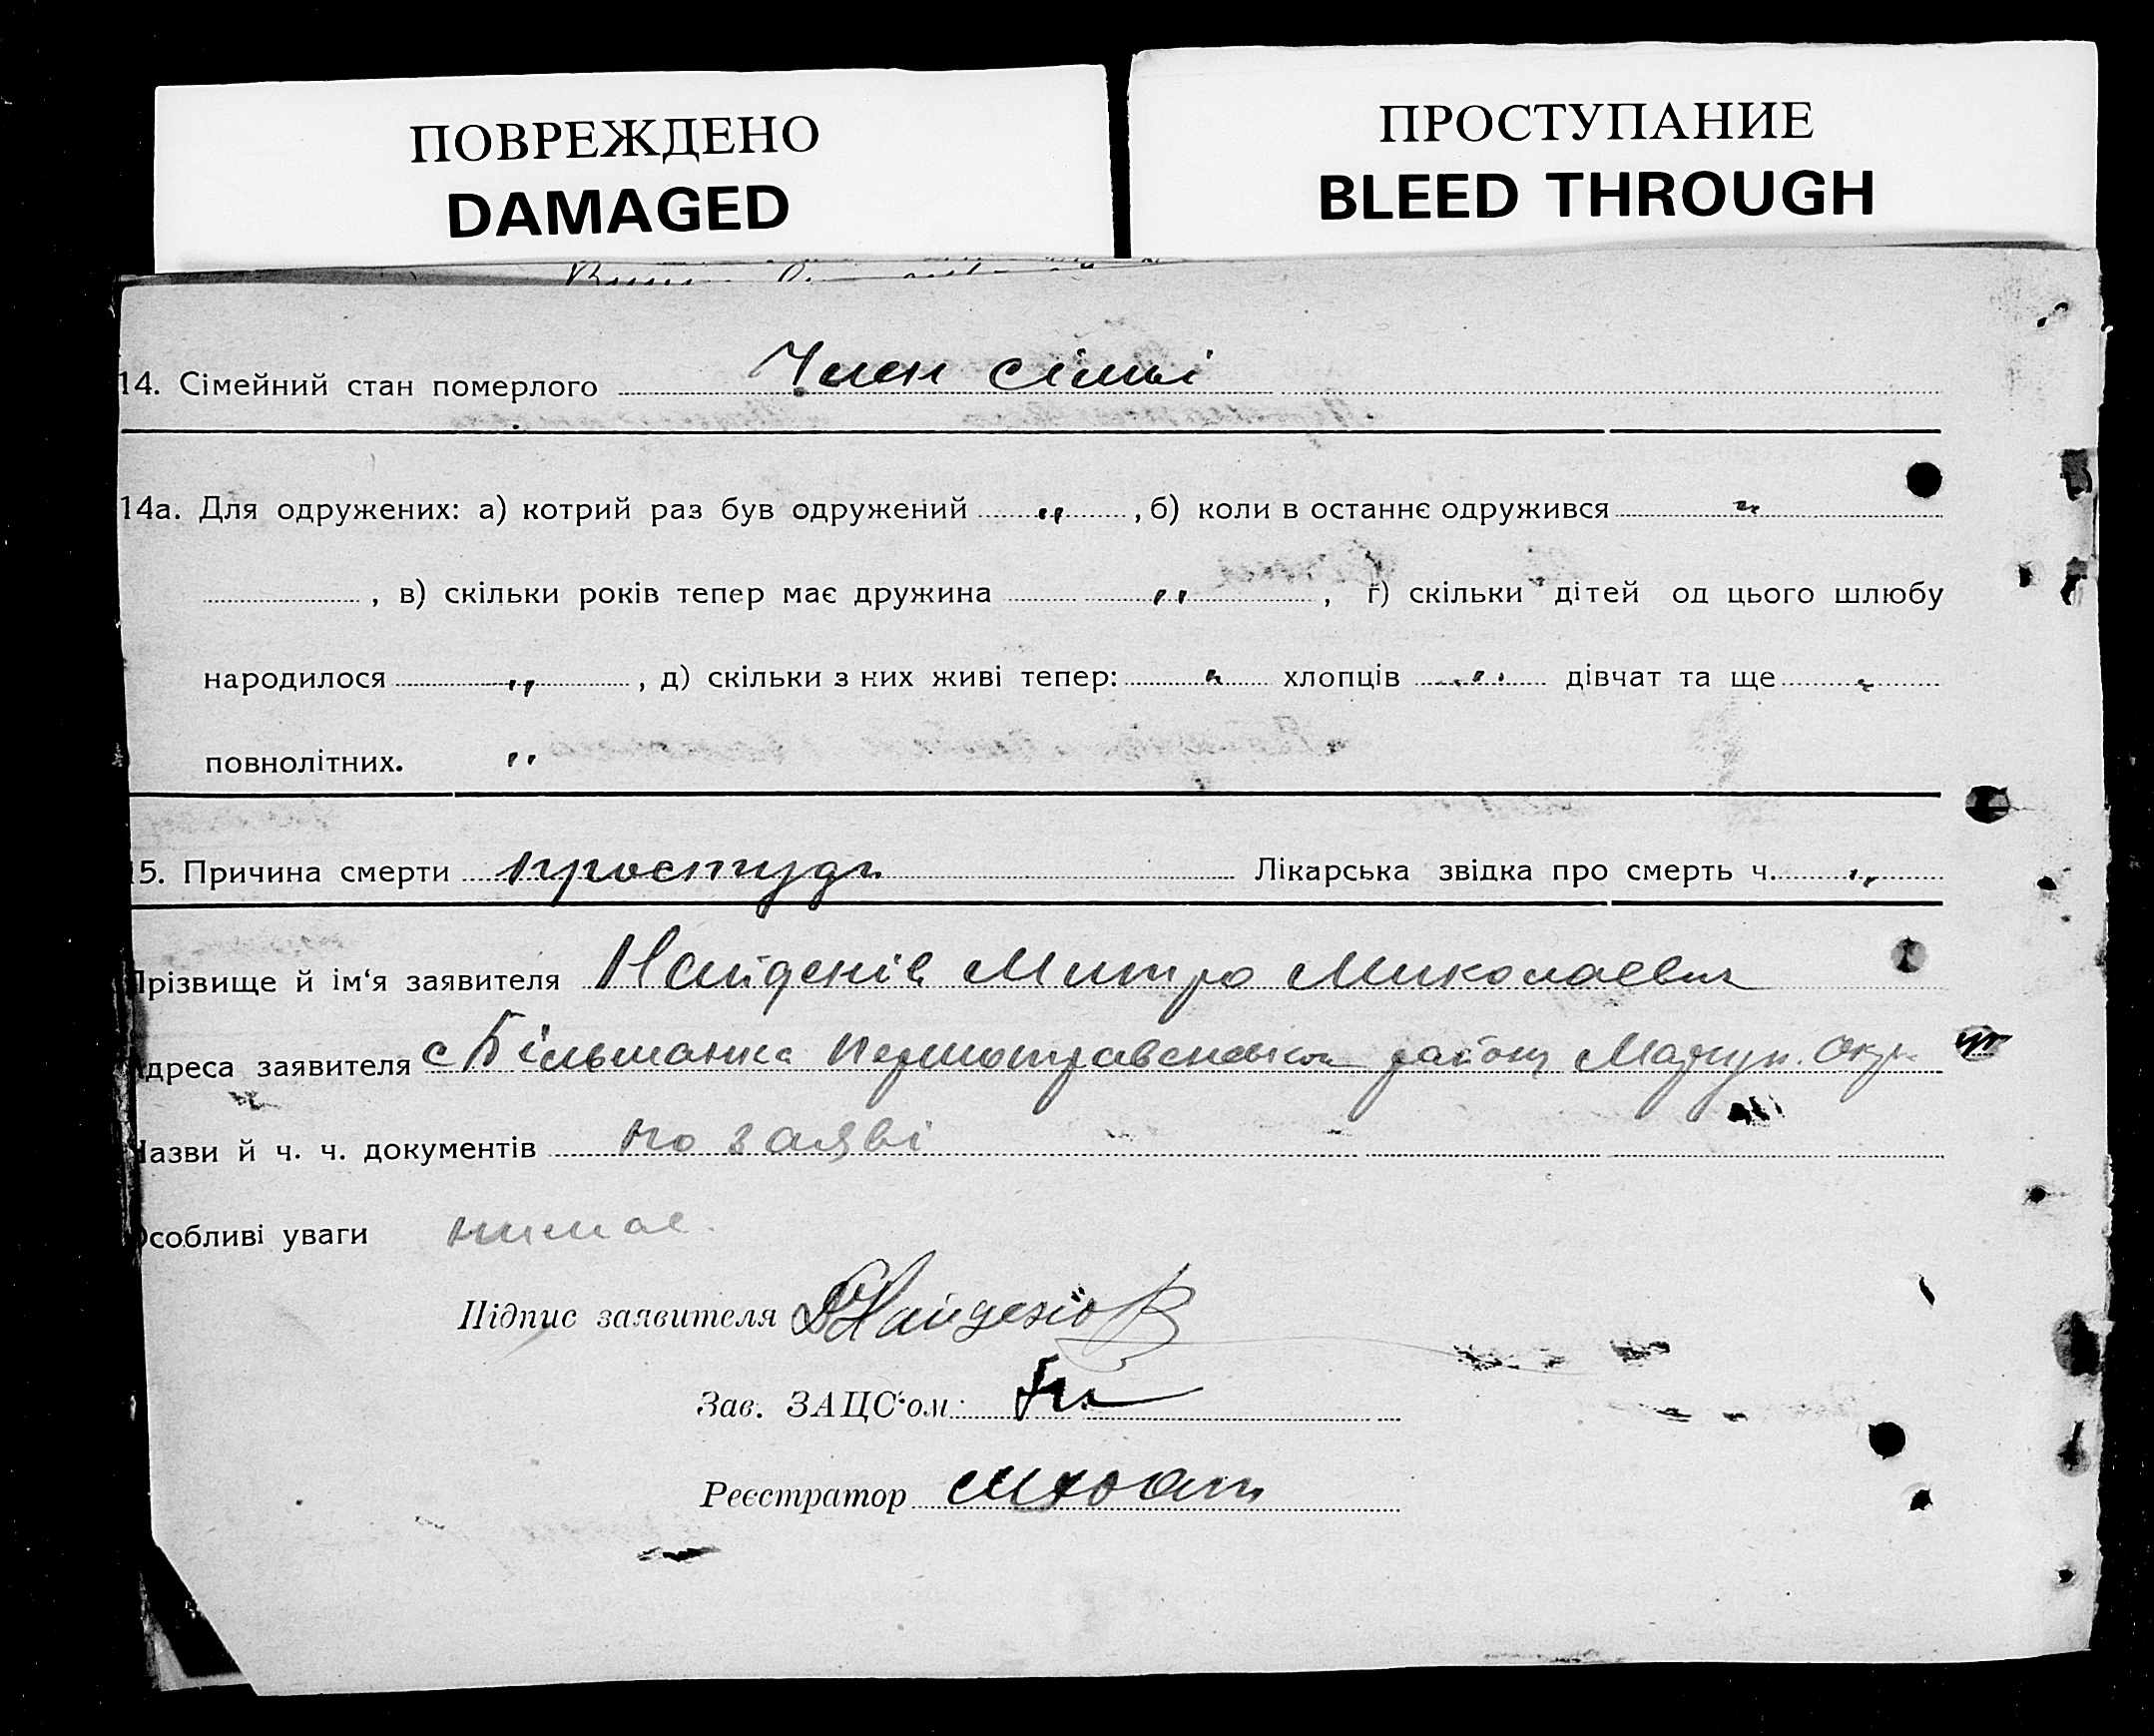 ПОВРЕЖДЕНО
DAMAGED
ПРОСТУПАНИЕ
BLEED THROUGH
14. Сімейний стан померлого Член сімьі
14а. Для одружених: а) котрий раз був одружений „ , б) коли в останнє одружився „
, в) скільки років тепер має дружина „ , г) скільки дітей од цього шлюбу
народилося „ , д) скільки з них живі тепер: „ хлопців „ дівчат та ще „
повнолітних. „
15. Причина смерти простуда Лікарська звідка про смерть ч. „
Прізвище й ім‘я заявителя Найденів Митро Миколаевич
Адреса заявителя с Більманка района Мариуп. Окр
Назви й ч. ч. документів по заяві
Особливі уваги нимае.
Підпис заявителя ДНайденов
Зав. ЗАЦС‘ом:
Реєстратор